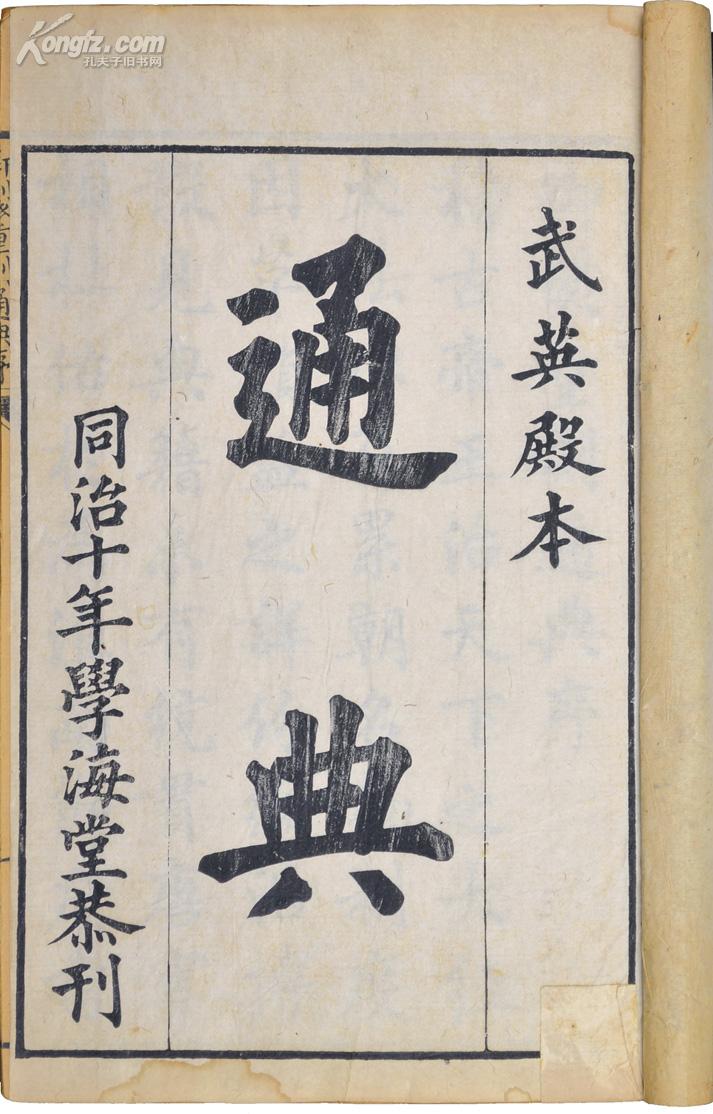 Kongfz.com
孔夫子旧书网
武英殿本
通典
同治十年學海堂恭刊